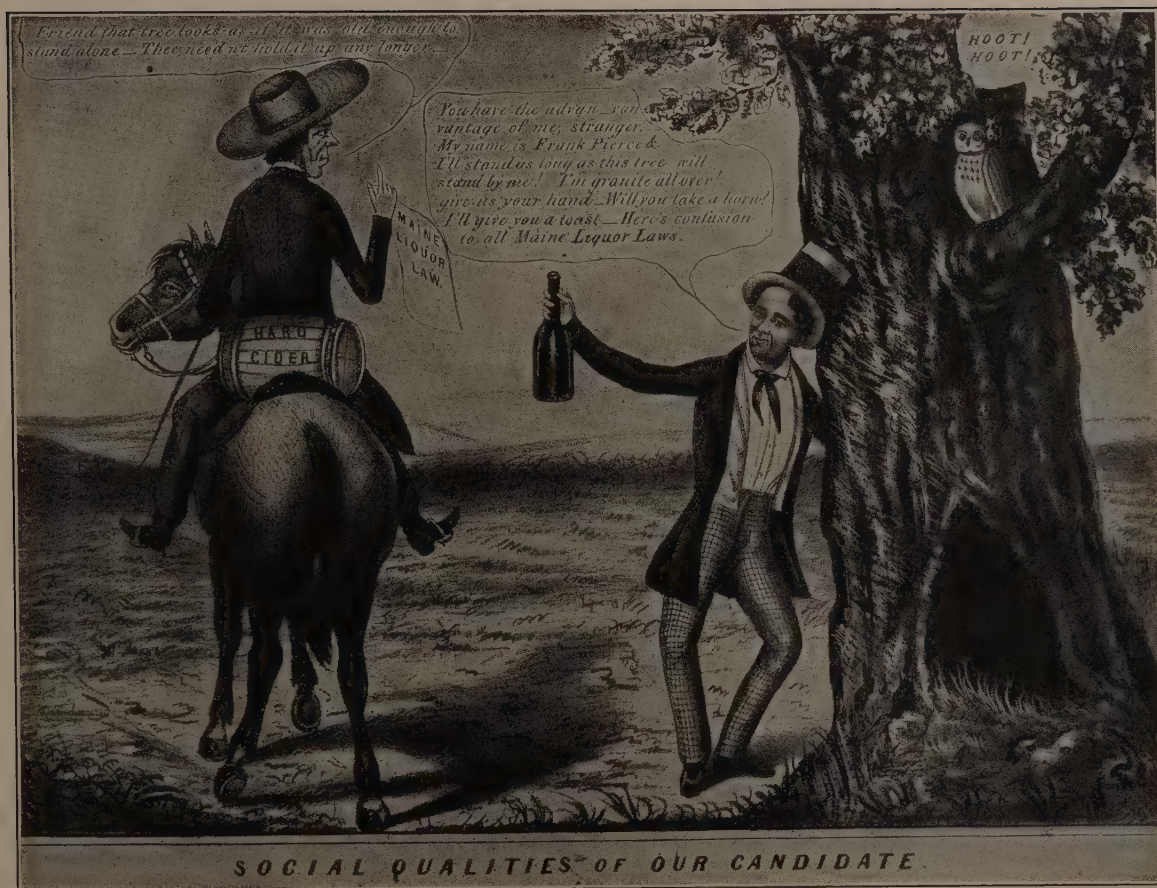 Friend that tree looks as if it was old enough to
stand alone — Thee need n't hold it up any longer —
HOOT!
HOOT!
You have the advan — van
vantage of me, stranger.
My name is Frank Pierce &
I'll stand as long as this tree will
stand by me! I'm granite all over!
give us your hand — Will you take a horn!
I'll give you a toast — Here's confusion
to all Maine Liquor Laws.
MAINE
LIQUOR
LAW.
HARD
CIDER
SOCIAL QUALITIES OF OUR CANDIDATE.